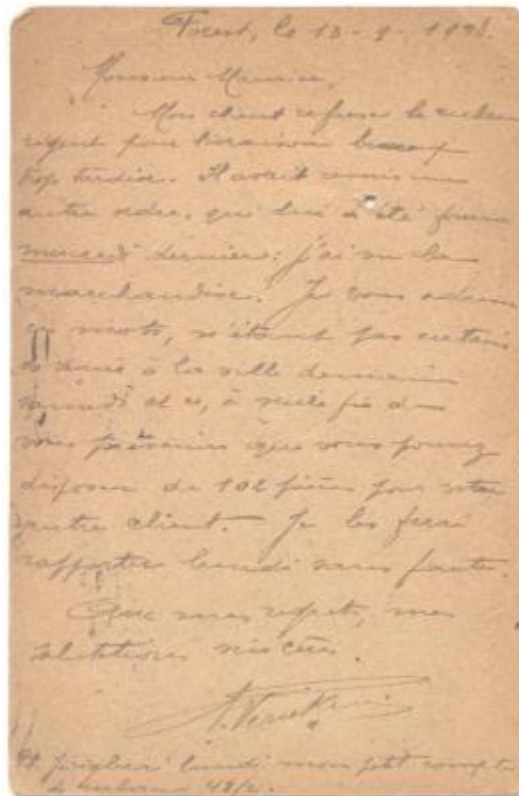 Forest, le 13-9-19
Monsieur Maurice,
Mon client refuse le
pour livraison beaucoup
trop tardive. Il avait remis un
autre ordre, qui lui a été fourni
mercredi dernier; j'ai vu la
marchandise. Je vous adresse
ces mots, n'étant pas certain
de venir à la ville demain
samedi et ce, à seule fin de
vous prévenir que vous pouvez
disposer de 102 pièces pour votre
autre client. Je les ferai
rapporter lundi sans faute.
Avec mes regrets, mes
salutations sincères.
lundi mon petit compte
de 48/2.